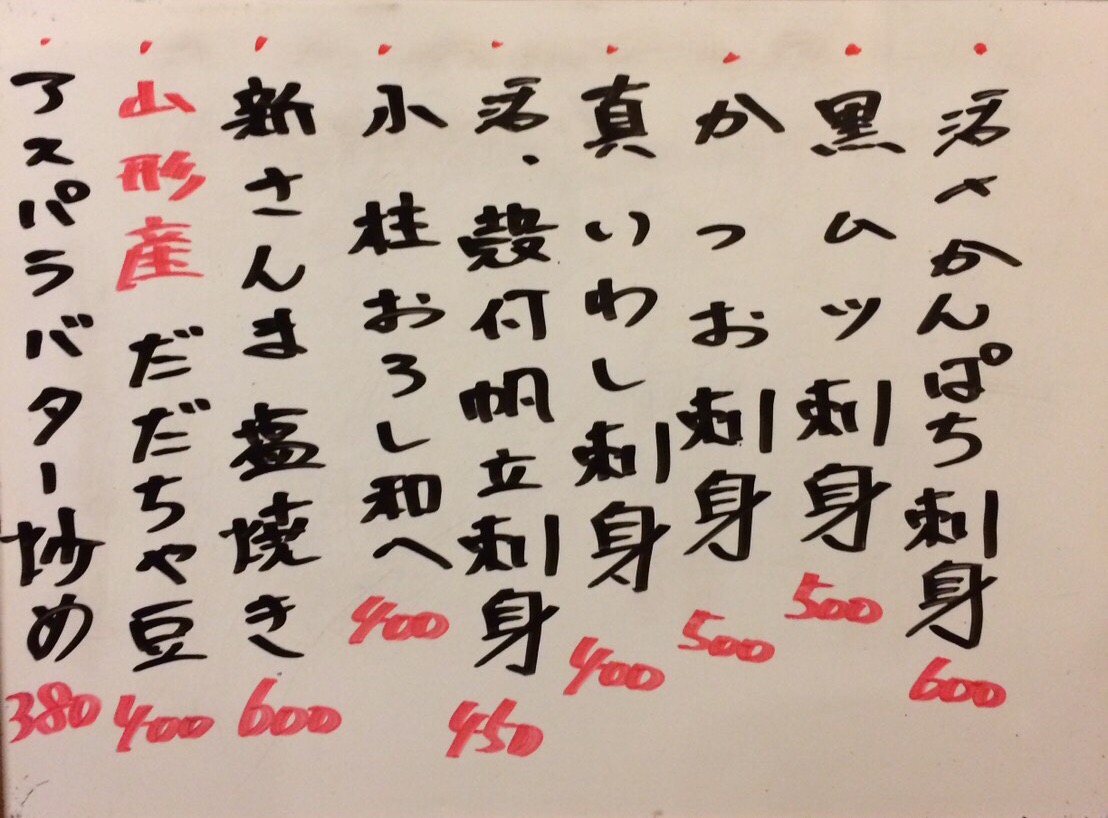 ・活〆かんぱち刺身 600
・黒ムツ刺身 500
・かつお刺身 500
・真いわし刺身 400
・活・殻付帆立刺身 450
・小柱おろし和へ 400
・新さんま塩焼き 600
・山形産だだちゃ豆 400
・アスパラバター炒め 380